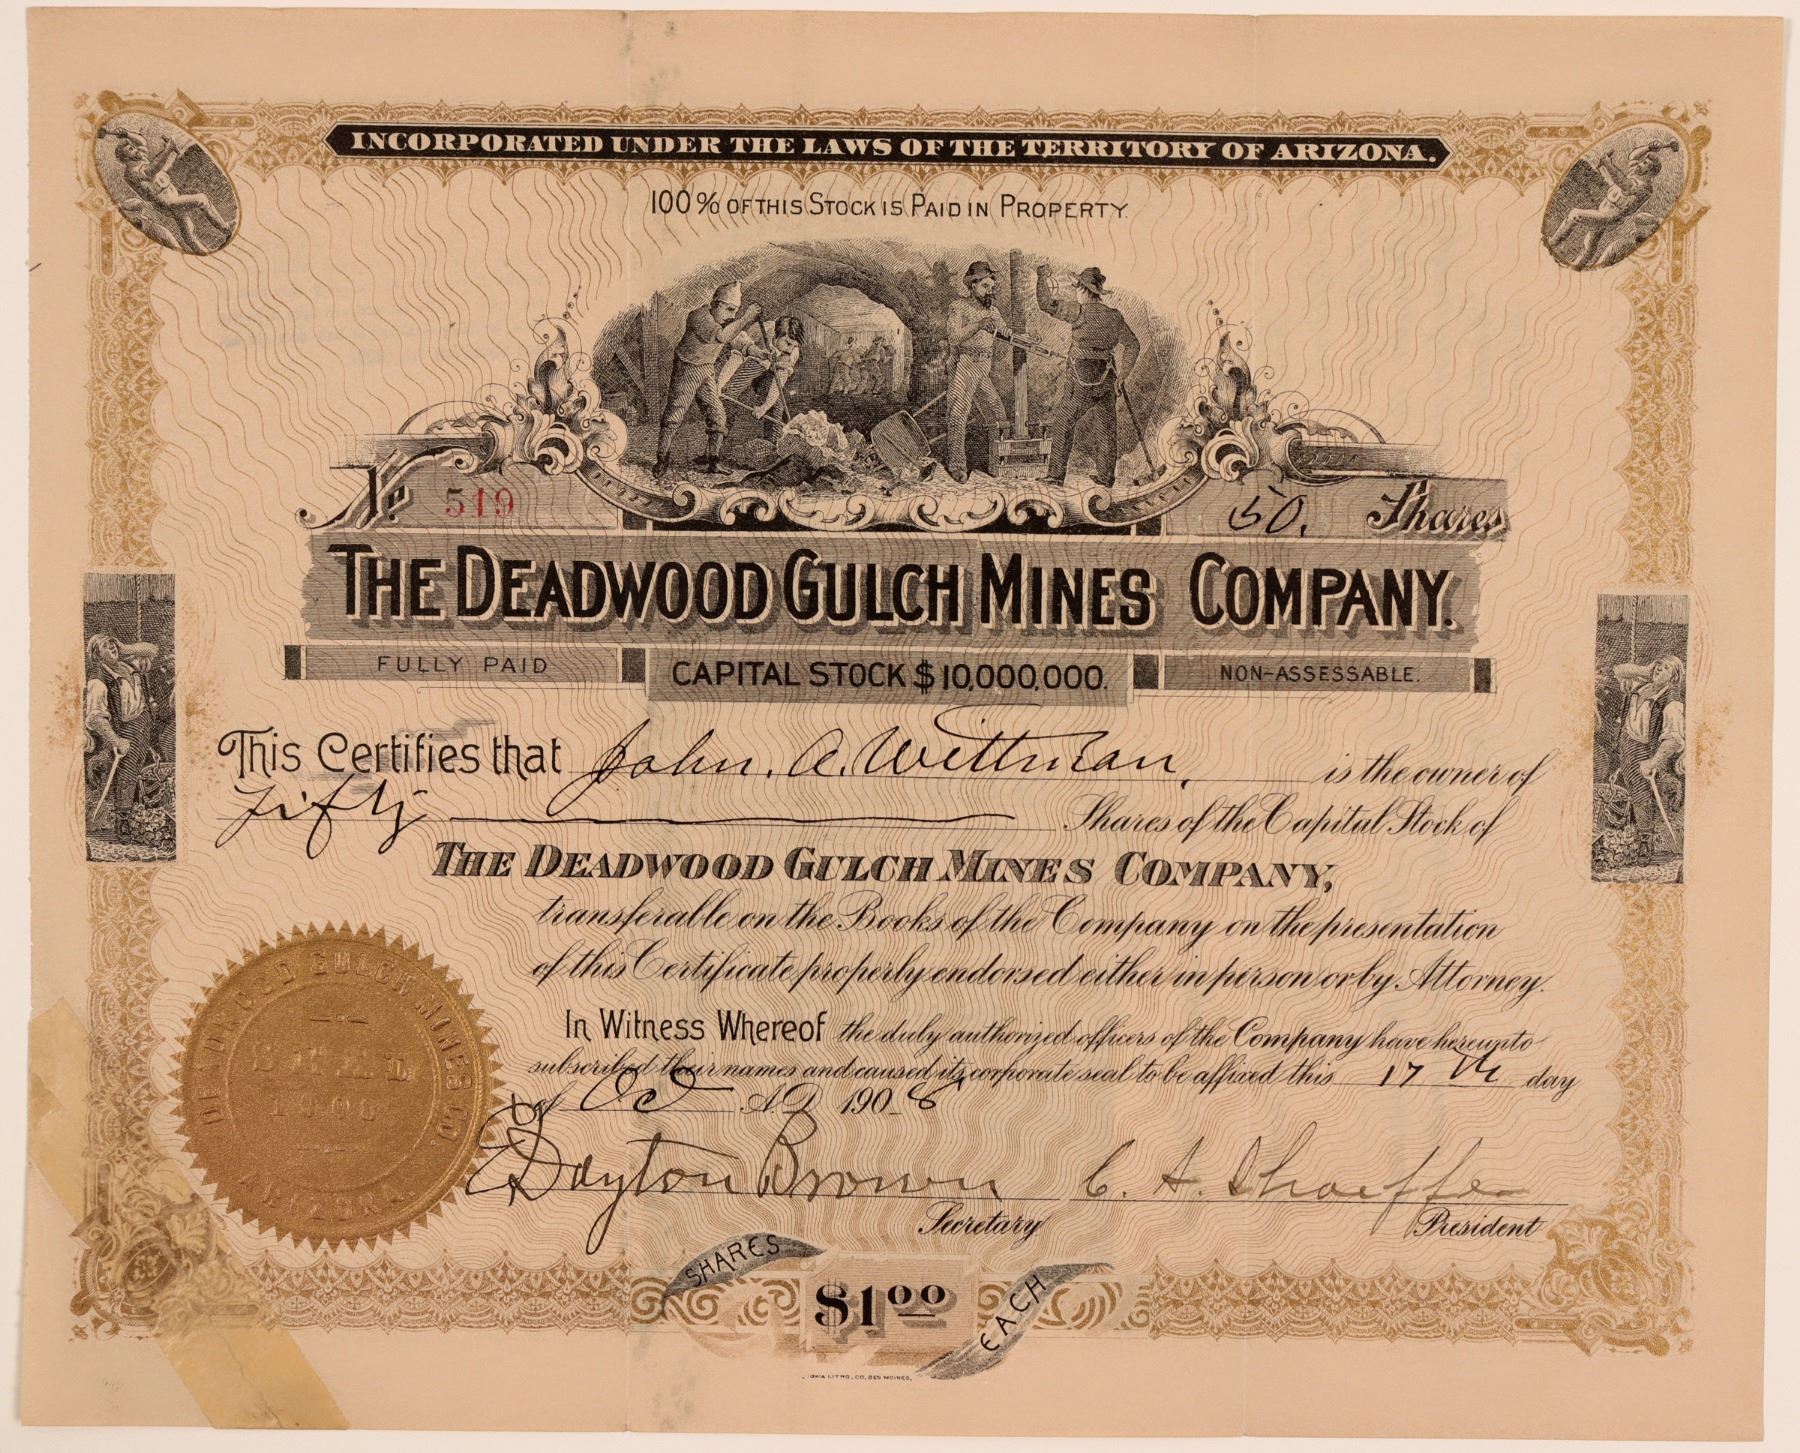 INCORPORATED UNDER THE LAWS OF THE TERRITORY OF ARIZONA.
100% OF THIS STOCK IS PAID IN PROPERTY.
No. 519 50. Shares
THE DEADWOOD GULCH MINES COMPANY.
FULLY PAID CAPITAL STOCK $10,000,000. NON-ASSESSABLE.
This Certifies that John. A. Wittman, is the owner of
fifty Shares of the Capital Stock of
THE DEADWOOD GULCH MINES COMPANY,
transferable on the Books of the Company on the presentation
of this Certificate properly endorsed either in person or by Attorney.
In Witness Whereof the duly authorized officers of the Company have hereunto
subscribed their names and caused its corporate seal to be affixed this 17th day
of Oct A.D. 1908
DEADWOOD GULCH MINES CO.
1906
ARIZONA
Dayton Brown C. A. Shaeffer
Secretary President
SHARES $1.00 EACH
IOWA LITHO. CO. DES MOINES.